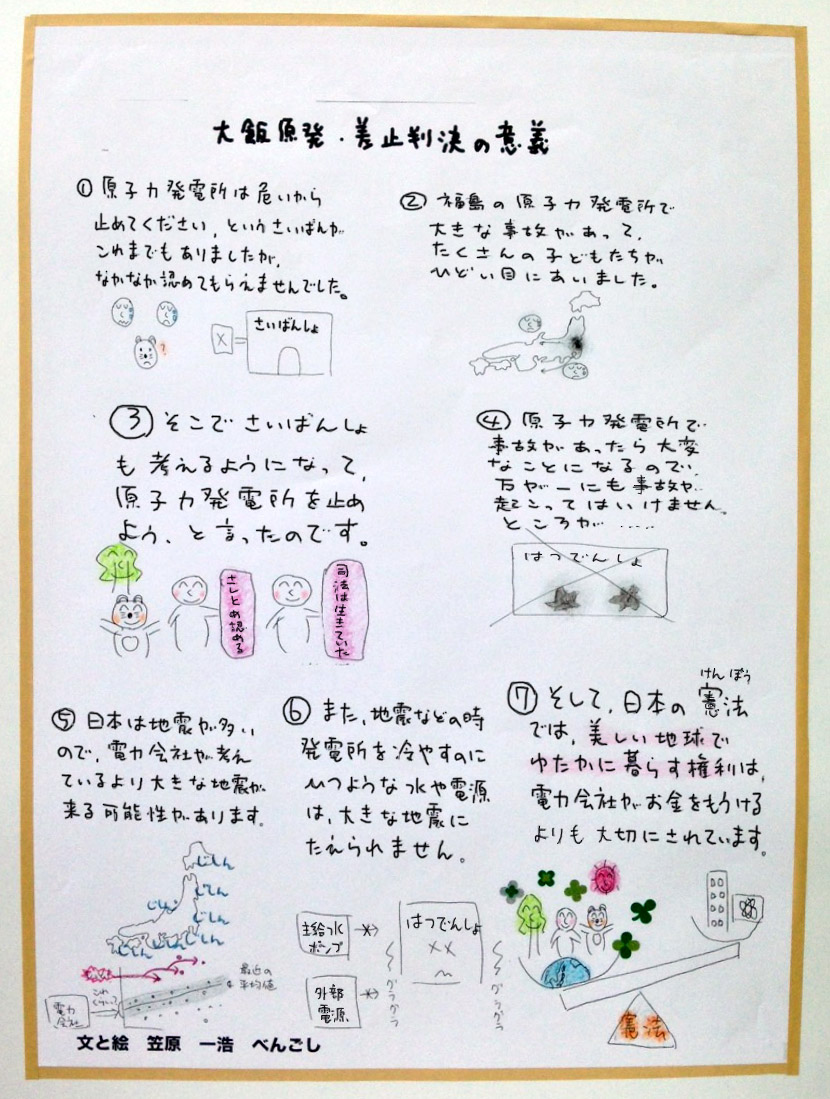 大飯原発・差止判決の意義
① 原子力発電所は危いから
止めてください,というさいばんが
これまでもありましたが,
なかなか認めてもらえませんでした。
?
×
さいばんしょ
② 福島の原子力発電所で
大きな事故があって,
たくさんの子どもたちが
ひどい目にあいました。
③ そこでさいばんしょ
も考えるようになって,
原子力発電所を止め
よう、と言ったのです。
さしとめ認める
司法は生きていた
④ 原子力発電所で
事故があったら大変
なことになるので,
万が一にも事故が
起こってはいけません。
ところが……
はつでんしょ
⑤ 日本は地震が多い
ので,電力会社が考え
ているより大きな地震が
来る可能性があります。
じしん
じしん
じしん
じしん
じしん
じしん
じしん
最近の
平均値
これくらい
電力
会社
⑥ また,地震などの時
発電所を冷やすのに
ひつような水や電源
は,大きな地震に
たえられません。
主給水
ポンプ
外部
電源
はつでんしょ
グラグラ
グラグラ
けんぽう
⑦ そして,日本の憲法
では,美しい地球で
ゆたかに暮らす権利は,
電力会社がお金をもうける
よりも大切にされています。
憲法
文と絵 笠原 一浩 べんごし